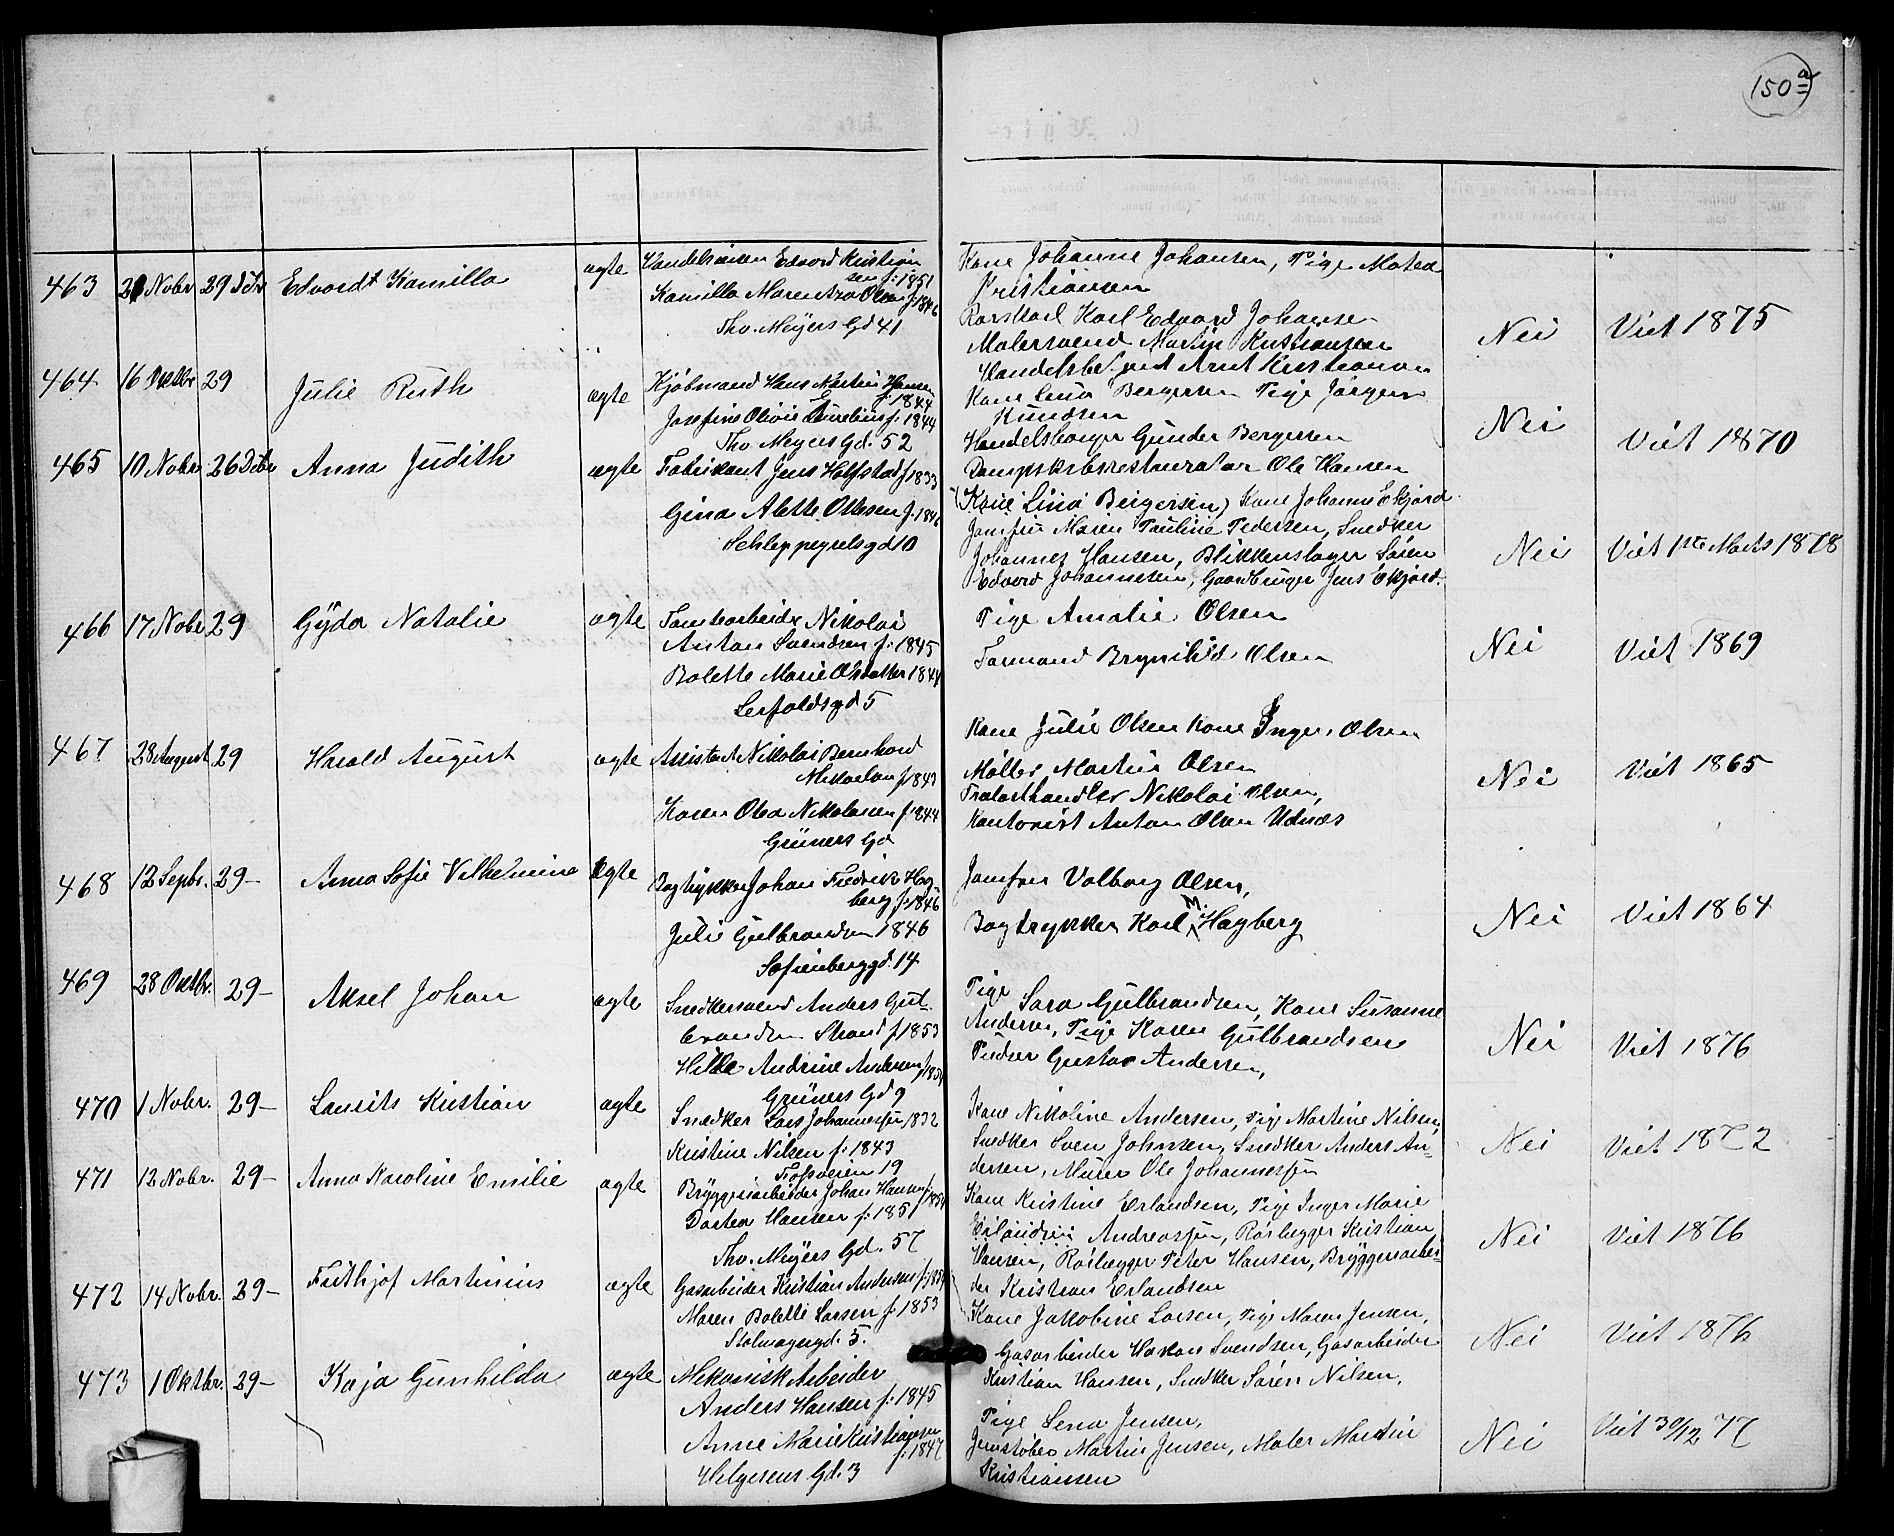 150a
463 21 Nobr 29 Debr Edvardt Kamilla ægte Handelsreisen Edvard Kristian
sen f: 1851
Kamilla Maren Olsen f. 1846
Thv. Meyers Gd 41
Kone Johanne Johansen, Pige Matea
Kristiansen
Rorskarl Karl Edvard Johansen
Malersvend Martin Kristiansen
Handelsbetjent Arnt Kristiansen
Nei Viet 1875
464 16 Oktbr 29 Julie Ruth ægte Kjøbmand Hans Martin Hansen
f. 1844
Josefine Olivie Aurelius f. 1844
Thv. Meyers Gd. 52
Kone Lina Bergersen Pige Jørgen
Knudsen
Handelsborger Gunder Bergersen
Dampskibsrestauratør Ole Hansen
(Kone Lina Bergersen)
Nei Viet 1870
465 10 Nobr 26 Debr Anna Judith ægte Fabrikant Jens Holfstad f 1833
Gina Alette Olsen f. 1846
Schleppegrelsgd 10
Kone Johanne Ekjord
Jomfru Maren Pauline Pedersen, Snedker
Johannes Hansen, Blikkenslager Søren
Edvard Johannesen, Gaardbruger Jens Ekjord.
Nei Viet 1ste Marts 1878
466 17 Nobr 29 Gyda Natalie ægte Tomtearbeider Nikolai
Anton Svendsen f. 1845
Bolette Marie Olsdatter 1844
Seifoldsgd 5
Pige Amalie Olsen
Formand Brynild Olsen
Nei Viet 1869
467 28 August 29 Harald August ægte Assistent Nikolai Bernhard
Mikaelsen f 1843
Karen Olea Nikolaisen f. 1844
Grüners Gd
Kone Julie Olsen Kone Inger Olsen
Møller Martin Olsen
Trælasthandler Nikolai Olsen,
Kontorist Anton Olsen Udnæs
Nei Viet 1865
468 12 Sepbr. 29- Anna Sofie Vilhelmine ægte Bogtrykker Johan Fredrik Hag
berg f. 1846
Julie Gulbrandsen 1846
Sofienberggd. 14
Jomfru Valborg Olsen,
Bogtrykker Karl M. Hagberg
Nei Viet 1864
469 28 Oktbr. 29- Aksel Johan ægte Snedkersvend Anders Gul-
brandsen Strand f 1853
Hilda Andrine Andersen f 1854
Grüners Gd 9
Pige Sara Gulbrandsen, Kone Susanne
Andersen, Pige Karen Gulbrandsen
Pudser Gustav Andersen,
Nei Viet 1876
470 1 Nobr. 29- Laurits Kristian ægte Snedker Lars Johannessen 1832
Kristine Nilsen f. 1843
Fossveien 19
Kone Nikoline Andersen, Pige Martine Nilsen,
Snedker Sven Johnsen, Snedker Anders An-
dersen, Murer Ole Johannessen
Nei Viet 1872
471 12 Nobr. 29- Anna Karoline Emilie ægte Bryggeriarbeider Johan Hansen f. 1854
Dortea Hansen f. 185
Thv. Meyers Gd. 57
Kone Kristine Erlandsen, Pige Inger Marie
Andreassen, Rørlægger Kristian
Hansen, Rørlægger Peter Hansen, Bryggeriarbei-
der Kristian Erlandsen
Nei Viet 1876
472 14 Nobr. 29- Frithjof Martinius ægte Gasarbeider Kristian Andersen f. 1854
Maren Bolette Larsen f. 1853
Stolmagergd. 5.
Kone Jakobine Larsen, Pige Maren Jensen,
Gasarbeider Hakon Svendsen, Gasarbeider
Kristian Hansen, Snedker Søren Nilsen,
Nei Viet 1876
473 1 Oktbr. 29- Kaja Gunhilda ægte Mekanisk Arbeider
Anders Hansen f. 1845
Anne Marie Kristiansen
f. 1847
Helgesens Gd. 3
Pige Lena Jensen,
Jernstøber Martin Jensen, Maler Martin
Kristiansen
Nei Viet 30/12 77